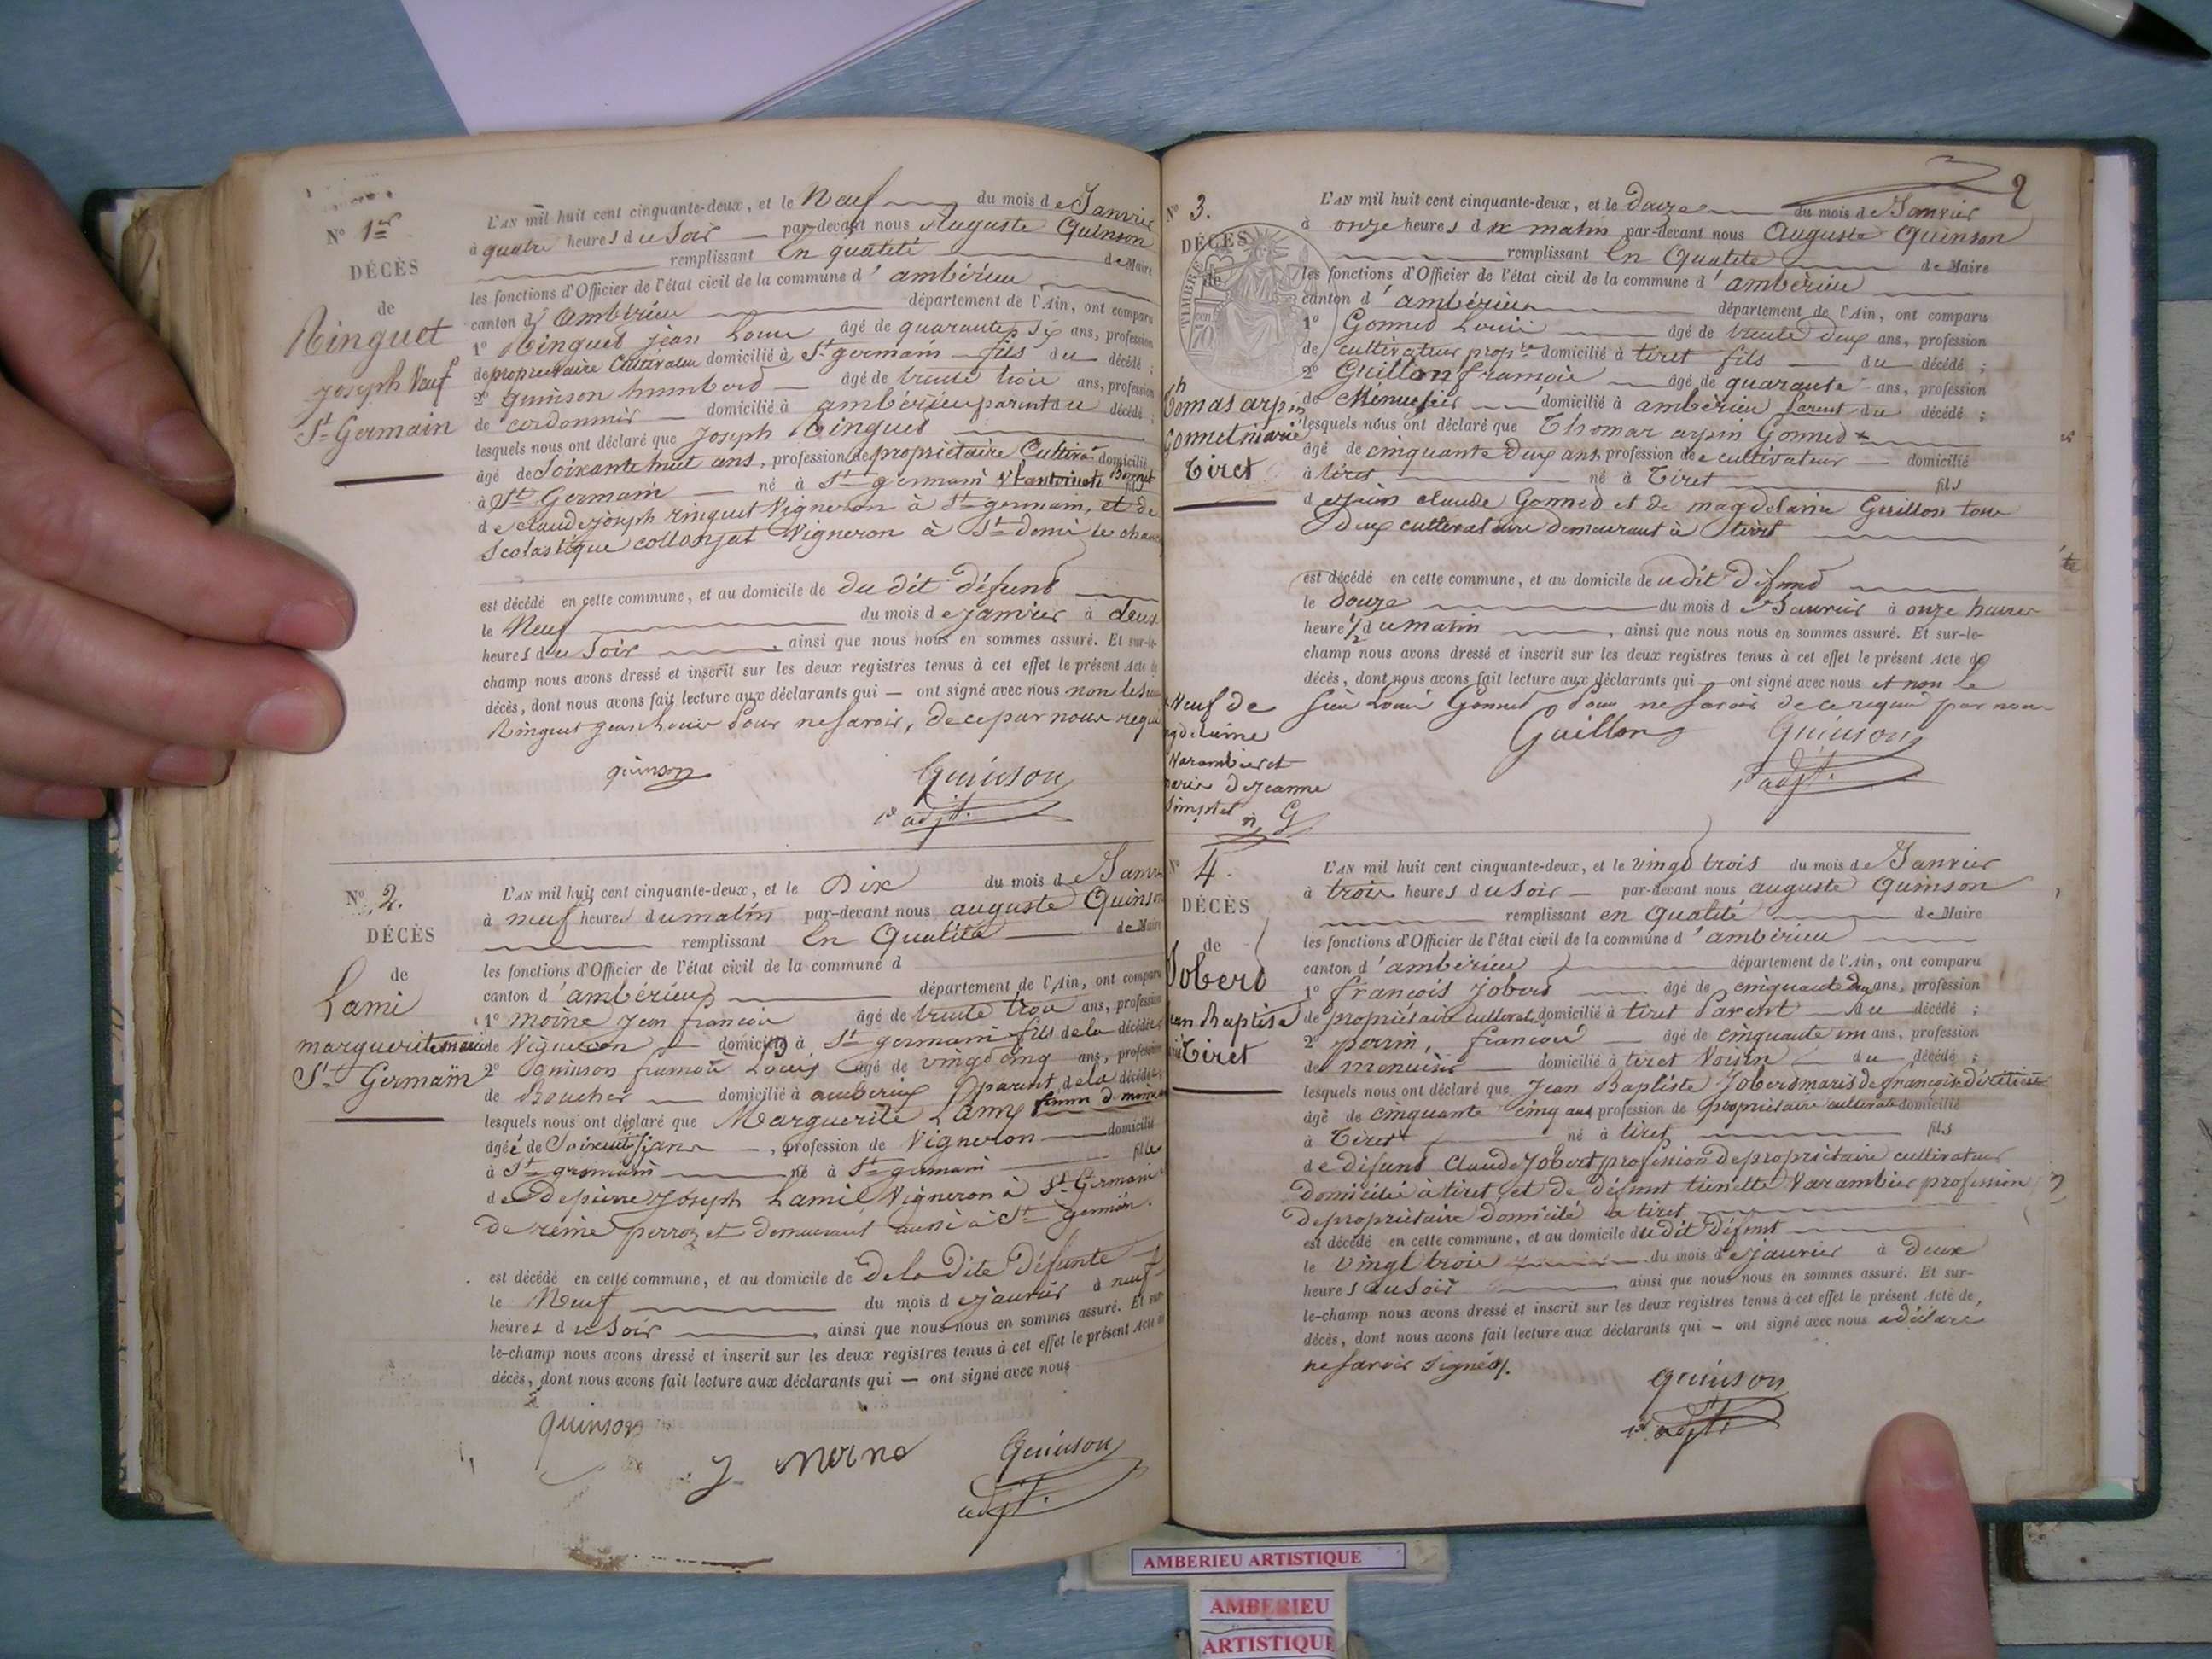 N° 1er
DÉCÈS
de
Ringuet
Joseph Veuf
St Germain
L'AN mil huit cent cinquante-deux, et le Neuf du mois de Janvier
à quatre heures du Soir par-devant nous Auguste Quinson
remplissant En qualité de Maire
les fonctions d'Officier de l'état civil de la commune d'ambérieu
canton d'Ambérieu département de l'Ain, ont comparu
1° Ringuet jean Louis âgé de quarante six ans, profession
de propriétaire Cultivateur domicilié à St germain fils du décédé ;
2° quinson humberd âgé de trente trois ans, profession
de cordonnier domicilié à ambérieu parent du décédé ;
lesquels nous ont déclaré que Joseph Ringuet
âgé de Soixante huit ans, profession de propriétaire Cultiva domicilié
à St Germain né à St germain Vf antoinette Bonnet fils
de claude joseph ringuet Vigneron à St germain, et de
Scolastique collonjat Vigneron à St
est décédé en cette commune, et au domicile de du dit défunt
le Neuf du mois de janvier à deux
heures du Soir, ainsi que nous nous en sommes assuré. Et sur-le-
champ nous avons dressé et inscrit sur les deux registres tenus à cet effet le présent Acte de
décès, dont nous avons fait lecture aux déclarants qui — ont signé avec nous non le
Ringuet jean Louis pour ne savoir, de ce par nous requi
quinson
Quinson
1er adjt.
N° 2.
DÉCÈS
de
Lami
marguerite
St Germain
L'AN mil huit cent cinquante-deux, et le Dix du mois de Janv
à neuf heures du matin par-devant nous auguste Quinson
remplissant En Qualité de Maire
les fonctions d'Officier de l'état civil de la commune d
canton d'ambérieu département de l'Ain, ont comparu
1° moine Jean françois âgé de trente trois ans, profession
de Vigneron domicilié à St germain fils de la décédée
2° Quinson françois Louis âgé de vingt cinq ans, profession
de Boucher domicilié à ambérieu parent de la décédée
lesquels nous ont déclaré que Marguerite Lamy femme d moine
âgée de, profession de Vigneron domicilié
à St germain né à St germain fille
de pierre Joseph Lami Vigneron à St Germain
de reine perroz et demeurant aussi à St germain.
est décédé en cette commune, et au domicile de de la Dite Défunte
le Neuf du mois de janvier à neuf
heures du Soir, ainsi que nous nous en sommes assuré. Et sur-
le-champ nous avons dressé et inscrit sur les deux registres tenus à cet effet le présent Acte de
décès, dont nous avons fait lecture aux déclarants qui — ont signé avec nous
quinson
J
Quinson
adjt.
2
N° 3.
DÉCÈS
de
TIMBRE
homas arpin
Gonnet marié
Tiret
L'AN mil huit cent cinquante-deux, et le Douze du mois de Janvier
à onze heures du matin par-devant nous Auguste Quinson
remplissant En Qualité de Maire
les fonctions d'Officier de l'état civil de la commune d'ambérieu
canton d'ambérieu département de l'Ain, ont comparu
1° Gonned Louis âgé de trente deux ans, profession
de cultivateur propre domicilié à tiret fils du décédé ;
2° Guillon françois âgé de quarante ans, profession
de Ménuisier domicilié à ambérieu parent du décédé ;
lesquels nous ont déclaré que Thomas arpin Gonned
âgé de cinquante Deux ans, profession de cultivateur domicilié
à tiret né à Tiret fils
de jean claude Gonned et de magdelaine Guillon tous
Deux cultivataire demeurant à tiret
est décédé en cette commune, et au domicile de udit Défund
le douze du mois de Janvier à onze heures
heure 1/2 du matin, ainsi que nous nous en sommes assuré. Et sur-le-
champ nous avons dressé et inscrit sur les deux registres tenus à cet effet le présent Acte de
décès, dont nous avons fait lecture aux déclarants qui — ont signé avec nous et non le
sieur Louis Gonned pour ne savoir de ce requi par nous
Veuf de
gdelaine
Varambier et
marié d jeanne
G
Guillon
Quinson
1er adjt.
N° 4.
DÉCÈS
de
Joberd
ean Baptiste
Tiret
L'AN mil huit cent cinquante-deux, et le vingt trois du mois de Janvier
à trois heures du Soir par-devant nous auguste Quinson
remplissant en Qualité de Maire
les fonctions d'Officier de l'état civil de la commune d'ambérieu
canton d'ambérieu département de l'Ain, ont comparu
1° françois joberd âgé de cinquante ans, profession
de propriétaire cultivat domicilié à tiret Parent du décédé ;
2° perrin, françois âgé de cinquante un ans, profession
de menuisier domicilié à tiret Voisin du décédé ;
lesquels nous ont déclaré que Jean Baptiste Joberd maris de françoise
âgé de cinquante cinq ans profession de propriétaire cultivat domicilié
à Tiret né à tiret fils
de défunt Claude Jobert profession de propriétaire cultivateur
domicilié à tiret et de défunt tienette Varambier profession
de propriétaire domicilié à tiret
est décédé en cette commune, et au domicile du dit Défunt
le vingt trois du mois de janvier à Deux
heures du Soir, ainsi que nous nous en sommes assuré. Et sur-
le-champ nous avons dressé et inscrit sur les deux registres tenus à cet effet le présent Acte de,
décès, dont nous avons fait lecture aux déclarants qui — ont signé avec nous a déclaré
ne savoir signé
quinson
1er adjt.
AMBERIEU ARTISTIQUE
AMBERIEU
ARTISTIQUE